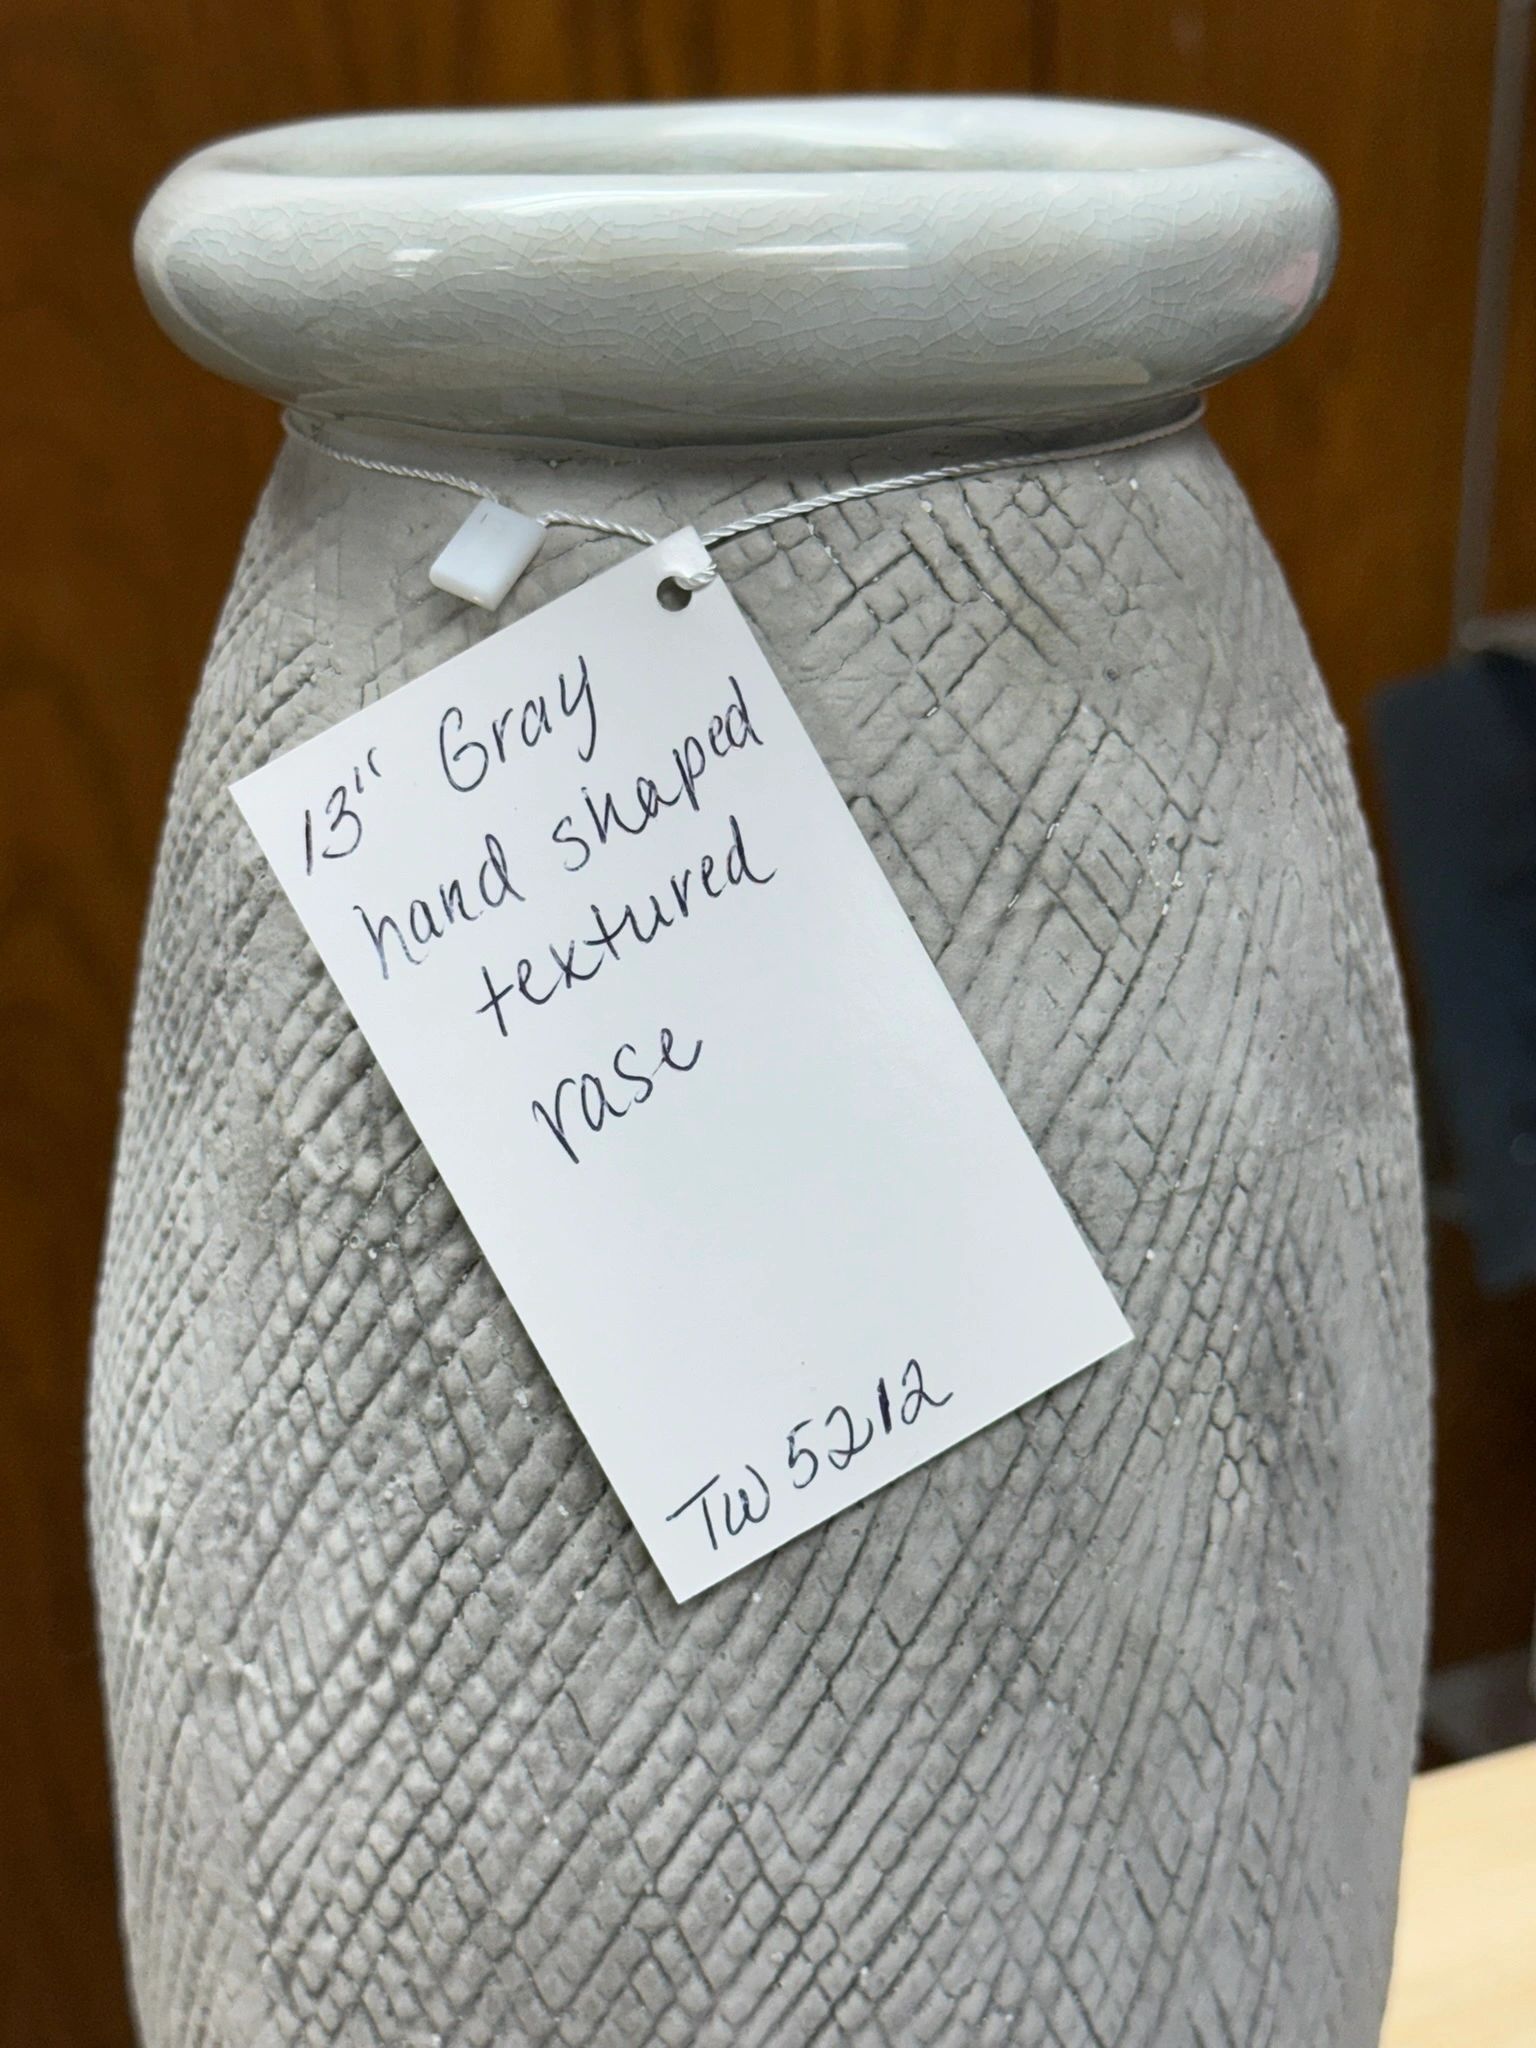 13" Gray
hand shaped
textured
vase
TW 5212